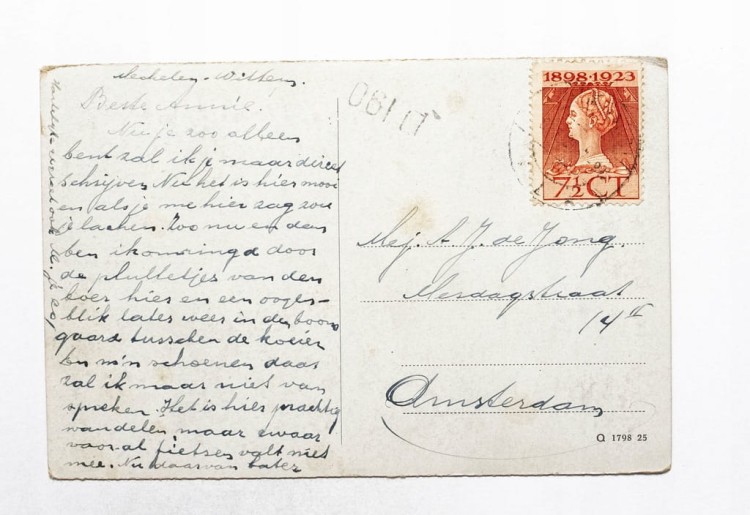 Mechelen-Wittem.
Beste Annie!
Nu je zoo alleen
bent zal ik je maar direct
schrijven. Nu het is hier mooi
en als je me hier zag zou
je lachen. Zoo nu en dan
ben ik omringd door
de plulletjes van den
boer hier en een oogen-
blik later weer in den boom
gaard tusschen de koeien
En m'n schoenen daar
zal ik maar niet van
spreken. Het is hier prachtig
wandelen maar zwaar
vooral fietsen valt niet
mee. Nu daarvan later
Hartelijk ook
06111
1898·1923
7½ CT
Mej. A. J. de Jong.
Mesdagstraat
14 II
Amsterdam
Q 1798 25